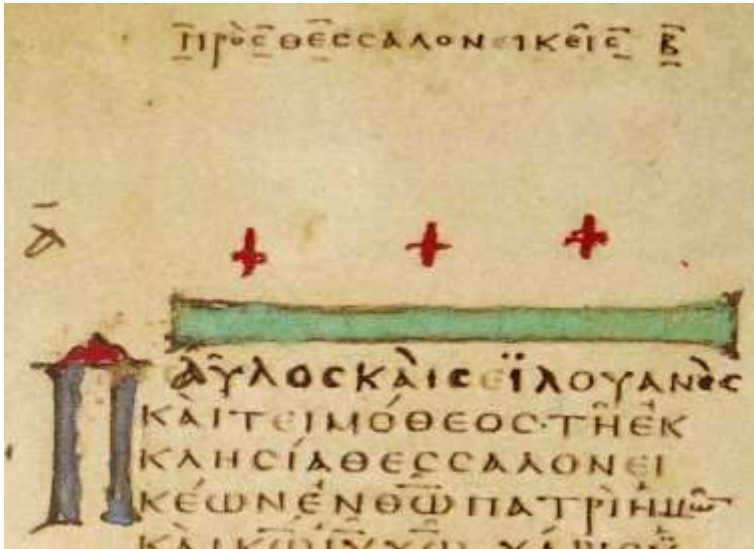 Πρὸϲ θεϲϲαλονεικεῖϲ Β̅
Α̅
ΠΑΥ̓ΛΟϹΚΑῚϹΕΪΛΟΥΑΝὸϹ
ΚΑῚΤΕΙΜΌΘΕΟϹ·ΤΗ͂ἘΚ
ΚΛΗϹΊΑΘΕϹϹΑΛΟΝΕΙ
ΚΈΩΝἘΝΘ̅Ω̅ΠΑΤΡῚἩΜΩ͂̅
ΚΑῚΚ̅Ω̅Ι̅Υ̅Χ̅Ω̅ ΧΆΡΙϹΫ